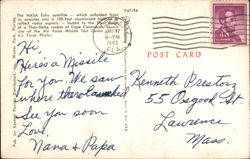 The NASA Echo satellite — which unfolded from
its canister into a 100-foot aluminized balloon to
reflect radio signals — mated to the nose
of a Thor-Delta rocket at Cape Canaveral,
site of the Air Force Missile Test Center
(Air Force Photo)
P47174
6 - PM
1963
FLA.
POST CARD
Hi,
Here's a Missile
for you. We saw
where they launched
See you soon
Love,
Nana & Papa
Kenneth Preston
55 Osgood St
Lawrence
Mass.